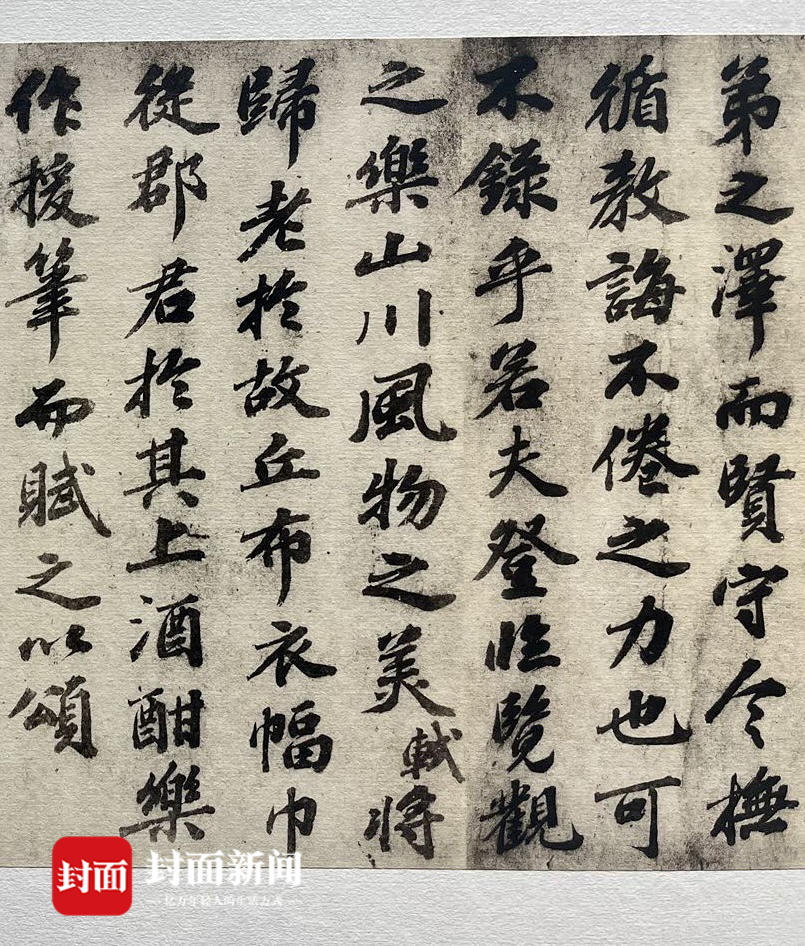 弟之澤而賢守令撫
循教誨不倦之力也可
不錄乎若夫登臨覽觀
之樂山川風物之美軾將
歸老於故丘布衣幅巾
從郡君於其上酒酣樂
作援筆而賦之以頌
封面
封面新闻
亿万年轻人的生活方式